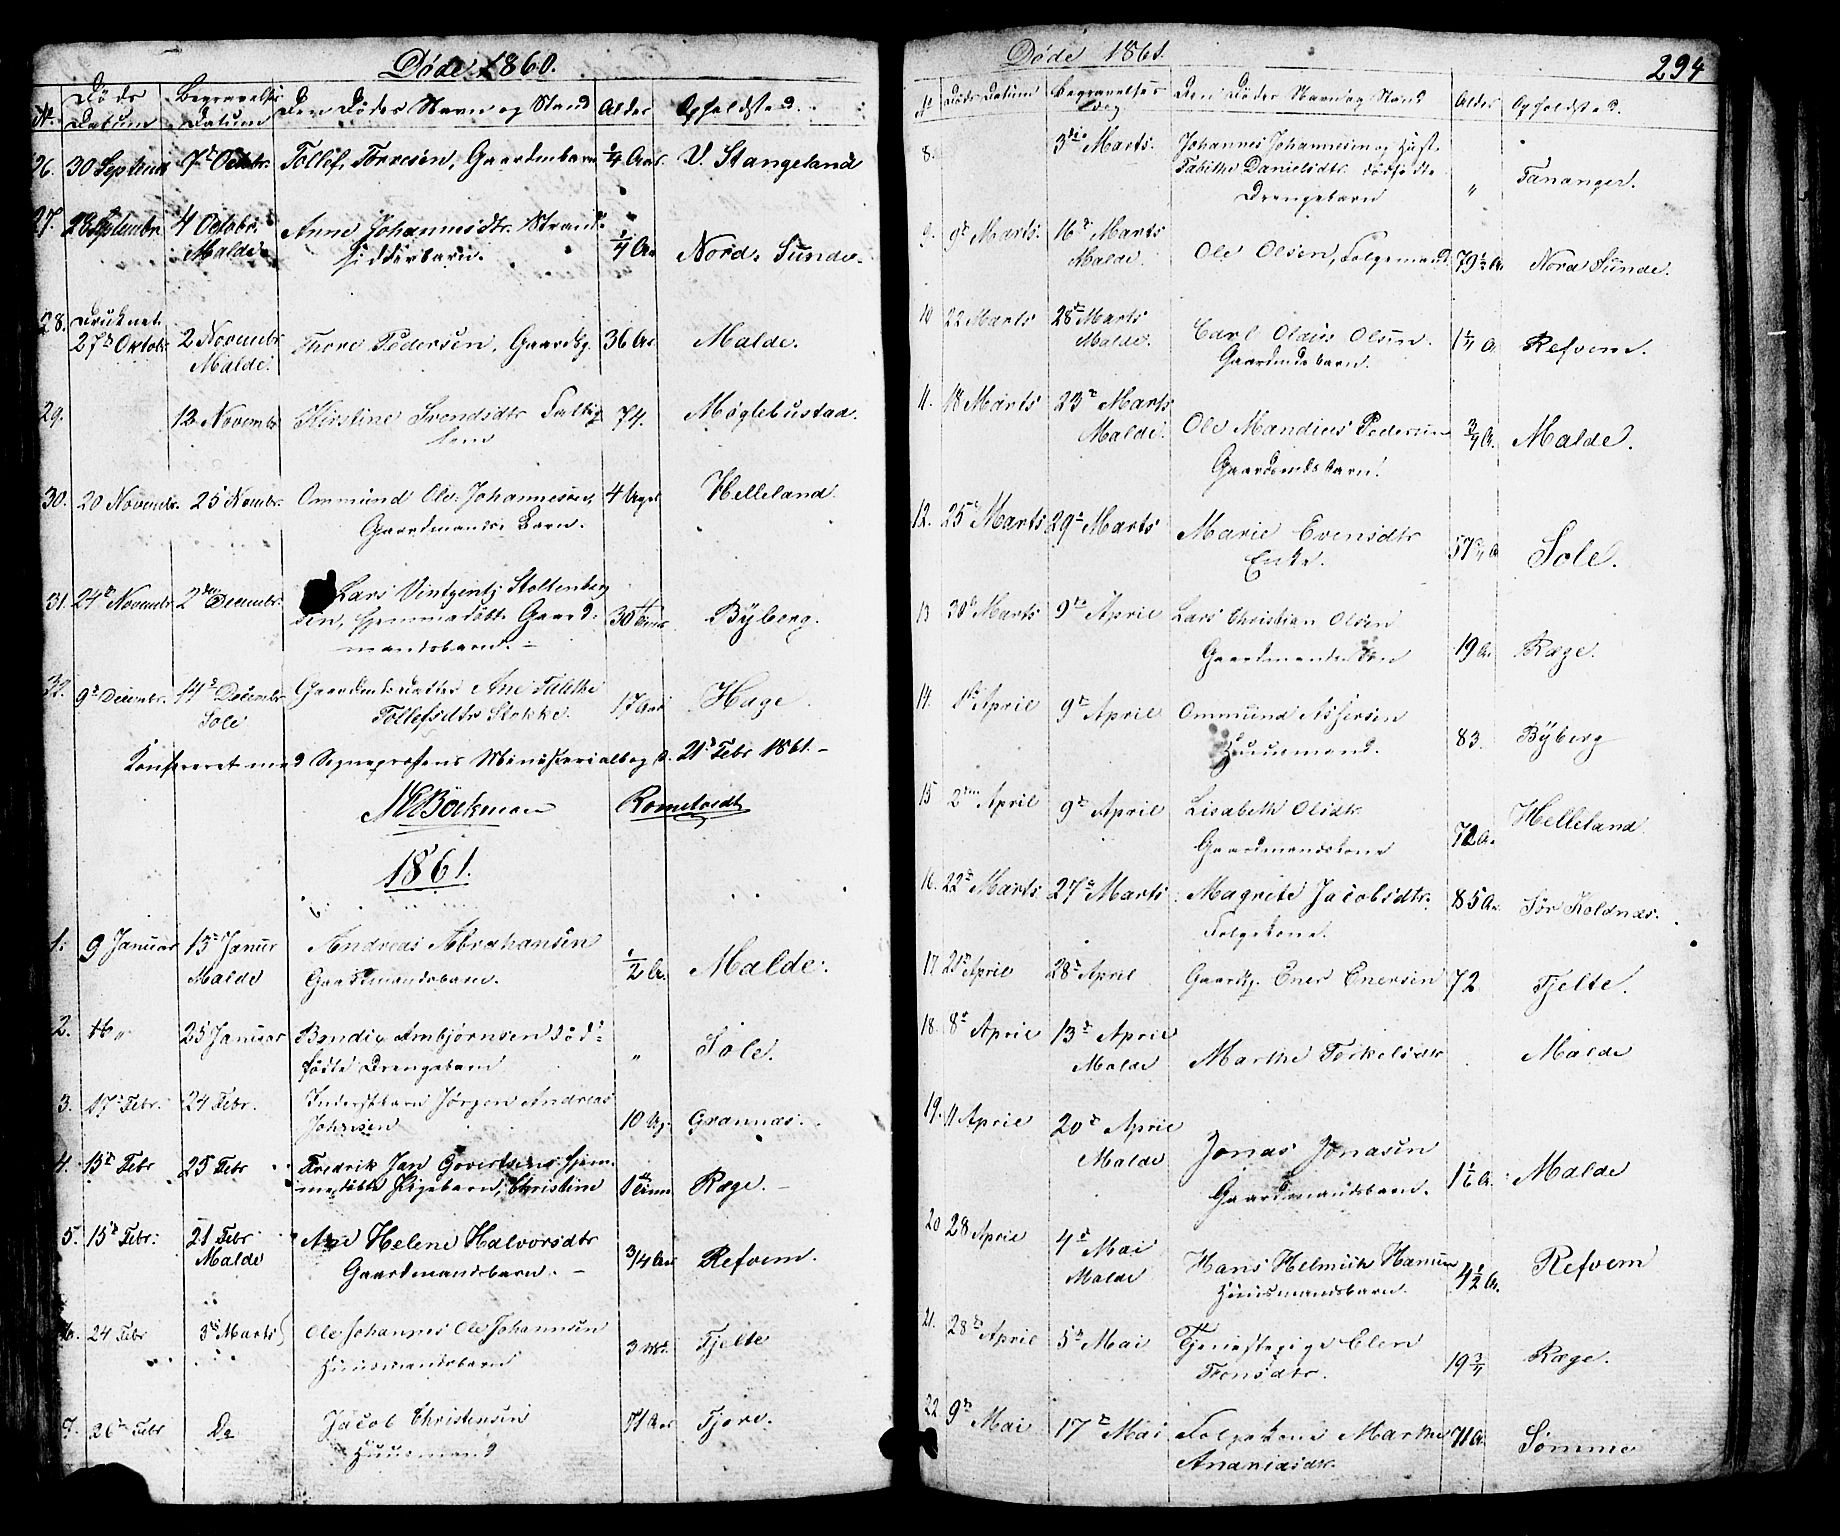 Døde 1860.
No. Døds Datum Begravelses Datum Den Dødes Navn og Stand Alder Opholdsted.
26. 30 Septembr 7de Octobr. Tollef Torresen, Gaardmbarn 1/4 Aar. V. Stangeland
27. 23 Septembr. 4 Octobr. Malde. Anne Johannesdtr. Strand-
sidderbarn. 1/4 Aar Nord. Sunde.
28. Druknet
27de Oktobr 2 Novembr Malde. Thore Pedersen, Gaardbg. 36 Aar Malde.
29. 12 Novembr Kirstine Svendsdtr Fattig
lem 74. Møglebustad.
30. 20 Novembr. 25 Novmbr. Ommund Ole Johannesen,
Gaardmands Barn. 4 Uger Helleland.
31. 24de Novembr 2den Decembr. Lars Vintzentz Stoltenberg
sen, hjemmedøbt Gaard-
mandsbarn. 30 Timer Byberg.
32. 9de Decembr. 14de Decembr Sole Gaardmdsdatter Ane Tabithe
Tollefsdtr Stokke. 17 Aar Hage.
Konfereret med Sogneprestens Ministerialbog d. 21de Febr 1861.
Bøckman Rometvedt
1861.
1. 9 Januar 15de Janur Malde Andreas Abrahamsen
Gaardmandsbarn. 1/2 A. Malde.
2. 16 " 25 Januar Bendix Ambjørnsen død-
fødte Drengebarn " Sole.
3. 17de Febr. 24 Febr. Inderstbarn Jørgen Andreas
Johnsen 10 Ug. Grannæs.
4. 15de Febr 25 Febr Fredrik Jan Govertsens hjem-
medøbte Pigebarn, Christine 1 Time Ræge.
5. 15de Febr. 21 Febr Malde Ane Helene Halvorsdtr
Gaardmandsbarn. 3/4 Aar Refvem.
6. 24 Febr 3de Marts Ole Johannes Ole Johannsen
Huusmandsbarn 3 Mdr. Tjelte
7. 26de Febr Do Jacob Christensen
Huusmand 71 Aar Tjore.
Døde 1861. 294
No Døds Datum Begravelses dag Den Dødes Navn og Stand Alder Opholdsted.
8. 3die Marts. Johannes Johannesen og Hust.
Tabithe Danielsdtr. dødfødte
Drengebarn " Tananger.
9. 9de Marts. 16de Marts Malde. Ole Olsen, Folgemand 79 1/2 A. Nord Sunde.
10 22 Marts 28de Marts Malde. Carl Olaus Olsen.
Gaardmdsbarn. 1 1/4 A. Refvem.
11. 18 Marts 23de Marts Malde. Ole Mandius Pedersen
Gaardmdsbarn. 3/4 A. Malde.
12. 25de Marts 29de Marts Marie Evensdtr
Enke. 57 3/4 A Sole.
13 30de Marts 9de April Lars Christian Olsen
Gaardmands Søn 19 A. Ræge.
14. 1ste April 9de April Ommund Assersen
Huusmand. 83. Byberg
15 2den April 9de April Lisabeth Olsdtr.
Gaardmandskone 72 A. Helleland
16. 22de Marts 27de Marts Magrete Jacobsdtr.
Folgekone. 85 A. Sør Kolnæs.
17 21de April 28de April Gaardbg. Ener Enersen 72 Tjelte.
18. 8de April 13de April Malde Marthe Torkelsdtr Malde
19. 11 April 20de April Malde Jonas Jonasen
Gaardmandsbarn. 1 1/6 A. Malde
20 28 April 4de Mai Malde Hans Helmich Hansen
Huusmandsbarn. 4 1/2 A. Refvem
21. 28de April 5de Mai Tjenestepige Elen
Tronsdtr. 19 3/4 Ræge.
22 9de Mai 17de Mai Folgekone Marthe
Ananiasdtr. 71 A. Sømme